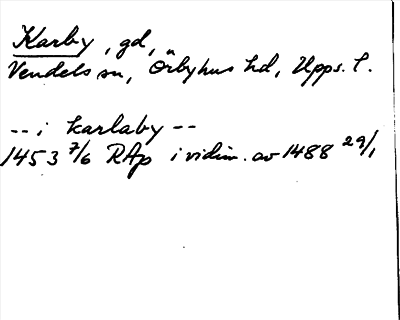 Karby, gd,
Vendels sn, Örbyhus hd, Upps. l.
-- i karlaby --
1453 7/6 RAp i vidim. av 1488 29/1